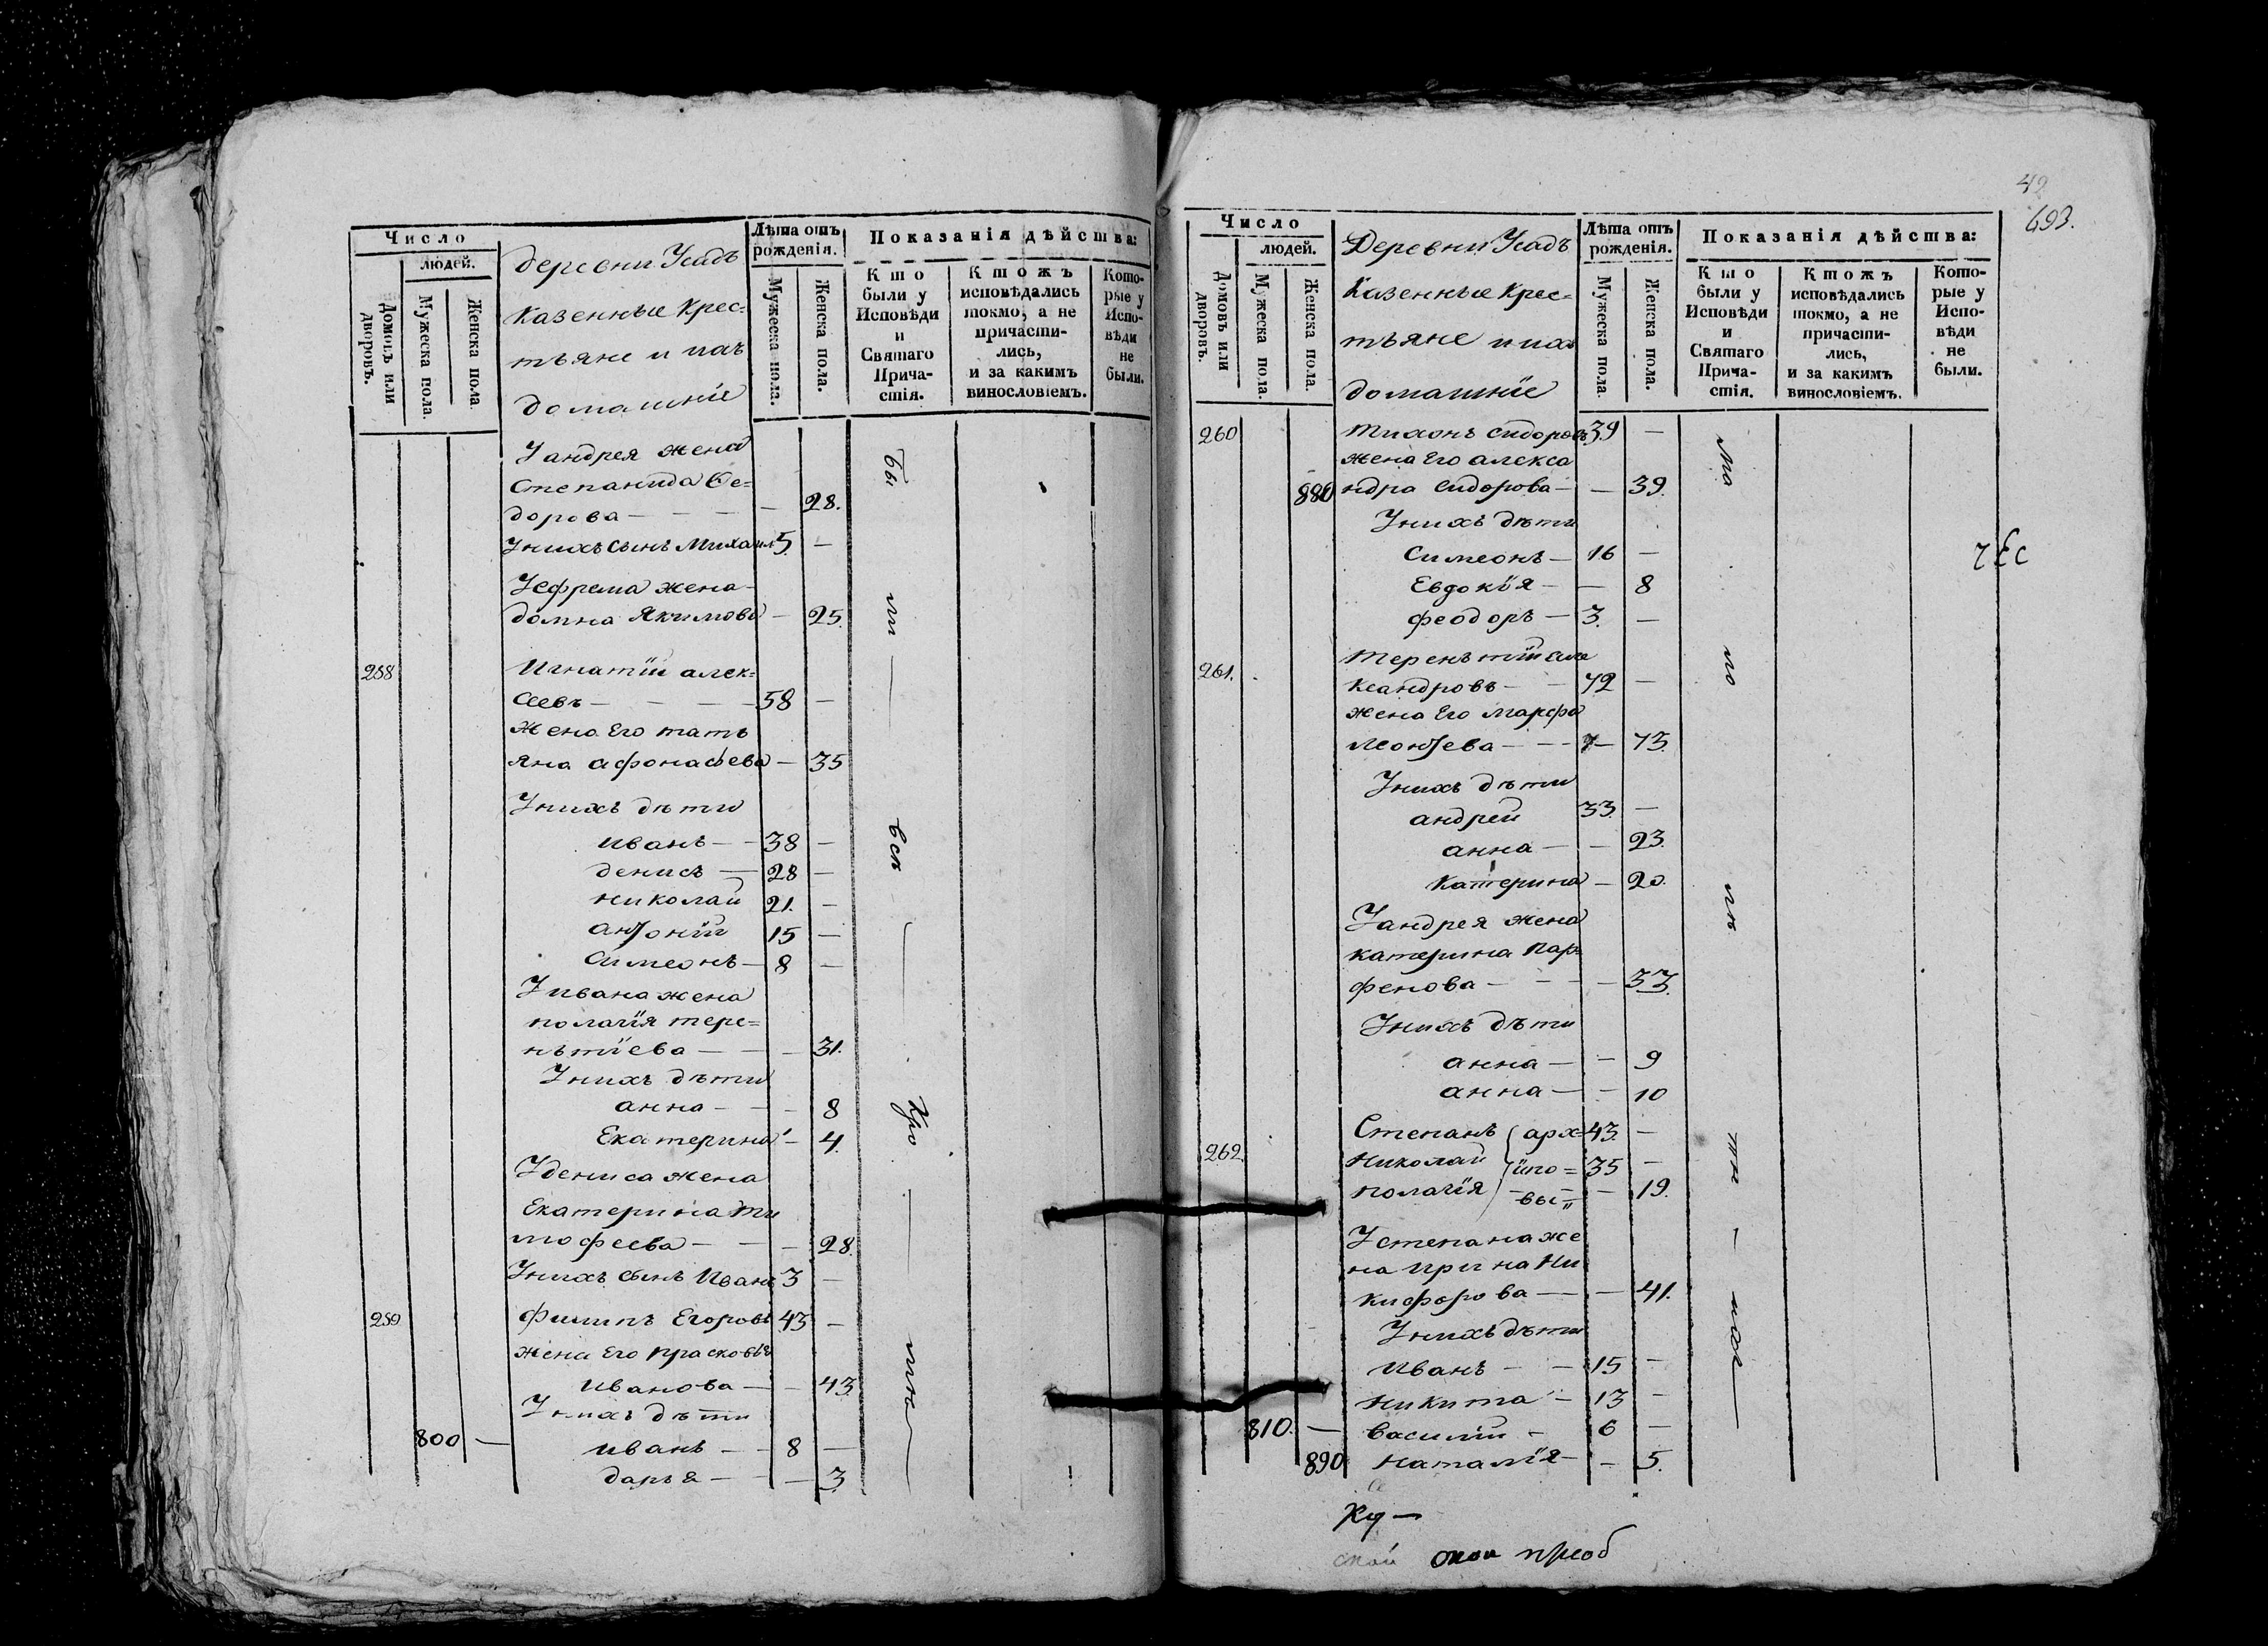 Число
людей.
Домовъ или дворовъ.
Мужеска пола.
Женска пола.
деревни Усадъ
казенные Крес=
тьяне и ихъ
домашніе
Лѣта отъ рожденія.
Мужеска пола.
Женска пола.
Показанія дѣйства:
Кто были у Исповѣди и Святаго Причастія.
Ктожъ исповѣдались токмо, а не причастились, и за какимъ винословіемъ.
Которые у Исповѣди не были.
У андрея жена
Степанида Ѳе=
дорова — — — — 28.
У нихъ сынъ Михаилъ 5. —
У Ефрема жена
домна Якимова — 25.
258 Игнатій алек=
сеевъ — — — — 58 —
жена Его тать
яна афонасьева — 35
У нихъ дѣти
иванъ — — 38 —
денисъ — 28 —
николай 21. —
антоній 15 —
Симеонъ — 8 —
У ивана жена
полагія тере=
нътіева — — — 31.
У нихъ дѣти
анна — — — 8
Екатерина — 4.
У дениса жена
Екатерина Ти
мофеева — — — 28.
У нихъ сынъ Иванъ 3 —
259 Филипъ Егоровъ 43 —
жена Его Прасковья
иванова — — 43
У нихъ дѣти
800 — иванъ — — 8 —
дарья — — — 3
Бы
ли —
всѣ
Кро
мѣ —
42
693.
Число
людей.
Домовъ или дворовъ.
Мужеска пола
Женска пола.
Деревни Усадъ
Казенные Крес=
тьяне и ихъ
домашніе
Лѣта отъ рожденія.
Мужеска пола
Женска пола.
Показанія дѣйства:
Кто были у Исповѣди и Святаго Причастія.
Ктожъ исповѣдались токмо, а не причастились, и за какимъ винословіемъ.
Которые у Исповѣди не были.
260 Тихонъ Сидоровъ 39 —
жена Его алекса
880 ндра Сидорова — — 39.
У нихъ дѣти
Симеонъ — 16 —
Евдокія — — 8
Феодоръ — 3. —
261. Терентій але
ксандровъ — — 72 —
жена Его марфа
леонтьева — — — 73.
У нихъ дѣти
андрей 33. —
анна — — 23.
Катерина — 20.
У андрея жена
катерина Пар=
фенова — — — — 33.
У нихъ дѣти
анна — — 9
анна — — 10
262. Степанъ арх= 43. —
Николай ипо= 35 —
полагія вы — 19.
У степана же
на Ирина Ни
кифорова — — 41.
У нихъ дѣти
Иванъ — — 15 —
Никита — 13 —
810. — Василій — 6 —
890 Наталія — — 5.
ма
ло
лѣ
тн —
ихъ —
Ку —
ской преоб